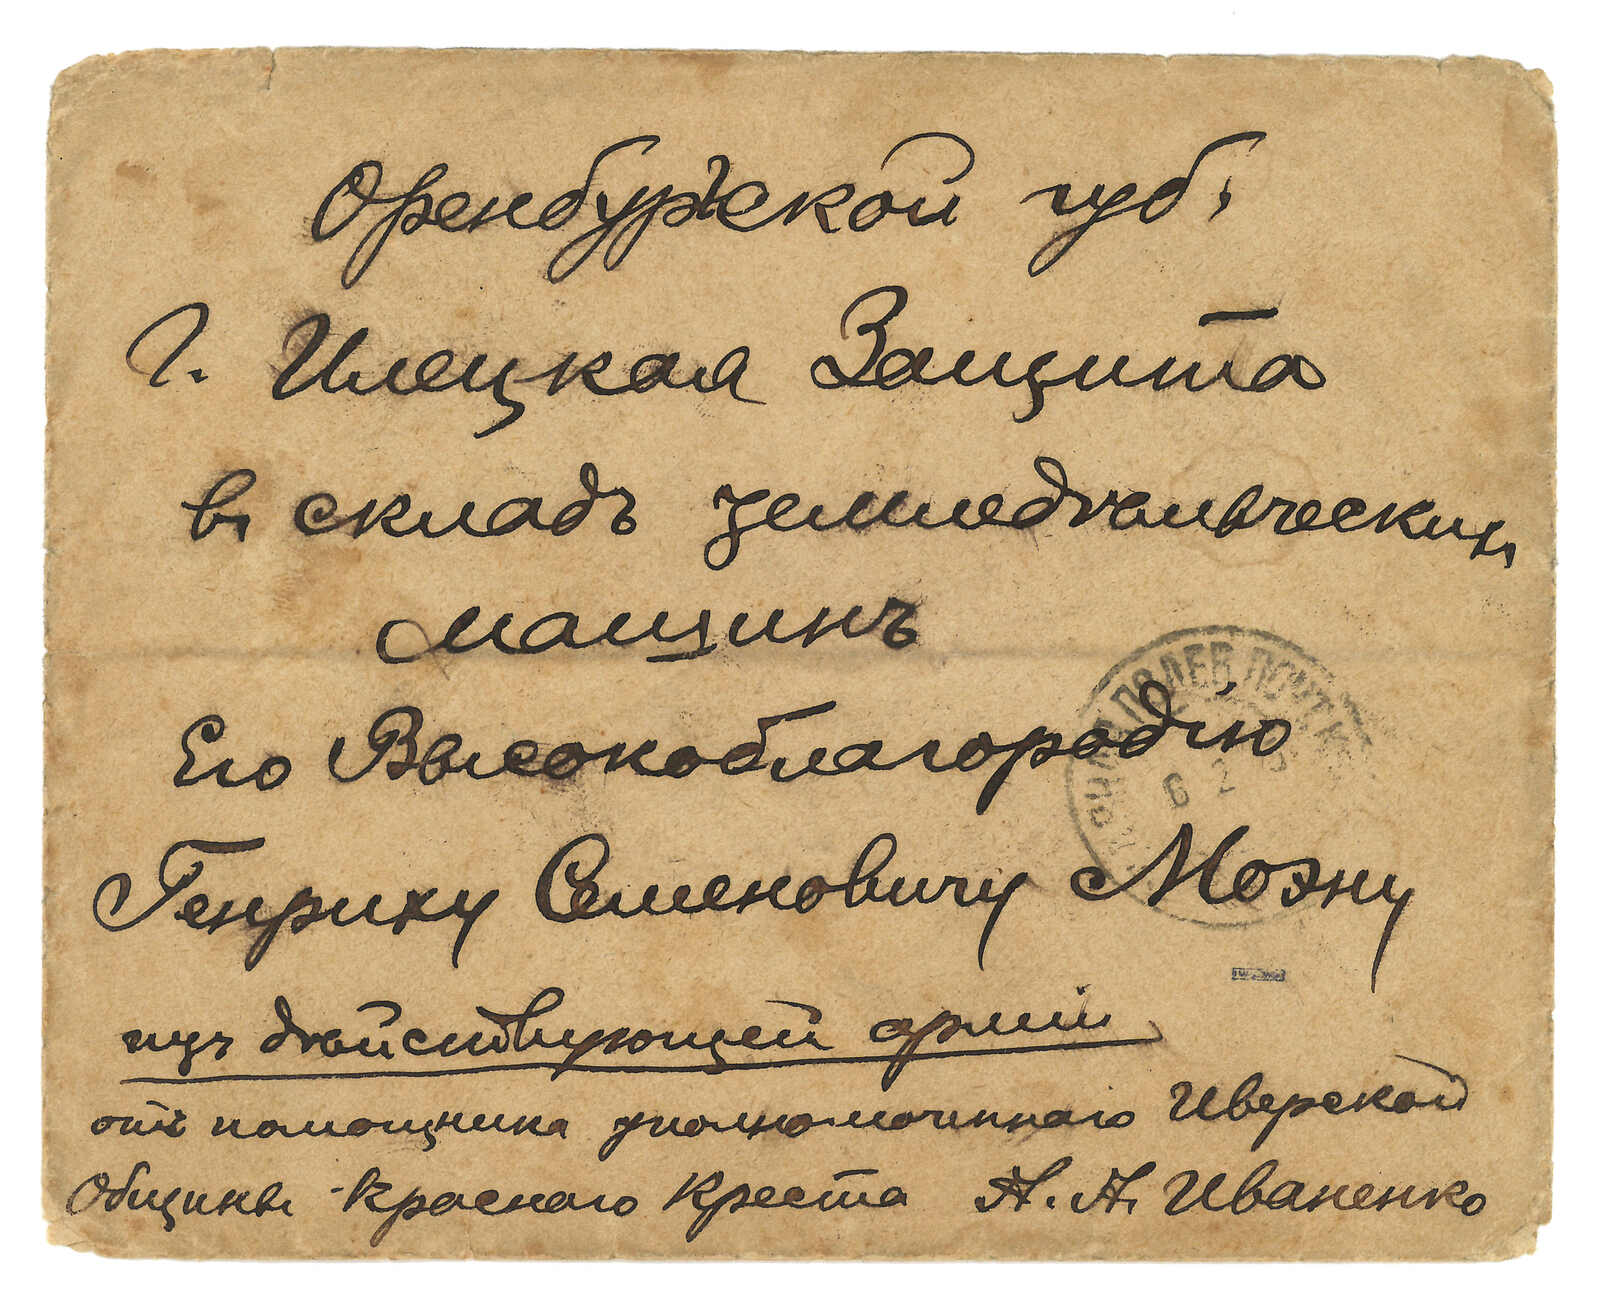 Оренбургской губ.
г. Илецкая Защита
въ складъ земледѣльческихъ
машинъ
Его Высокоблагородію
Генриху Семеновичу Моэну
изъ дѣйствующей арміи
отъ помощника уполномоченнаго Иверской
Общины Краснаго Креста А. А. Иваненко
ПОЛЕВ ПОЧТ
6 2